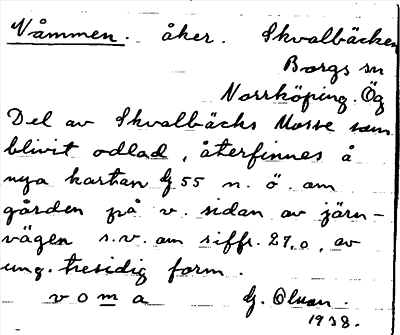 Våmmen. åker. Skvalbäcken
Borgs sn
Norrköping. Ög
Del av Skvalbäcks Mosse som
blivit odlad, återfinnes å
nya kartan Bj 55 n. ö. om
gården på v. sidan av järn-
vägen s.v. om siffr. 27.0, av
ung. tresidig form.
voma G. Olsson.
1938.